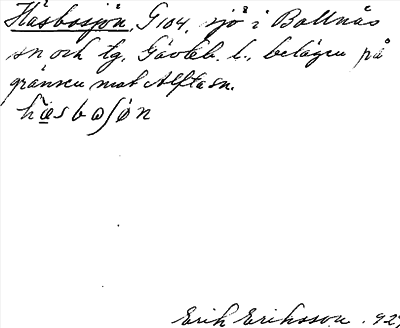 Håsbosjön, G 104, sjö i Bollnäs
sn och tg. Gävleb. l., belägen på
gränsen mot Alfta sn.
Erik Eriksson. 92